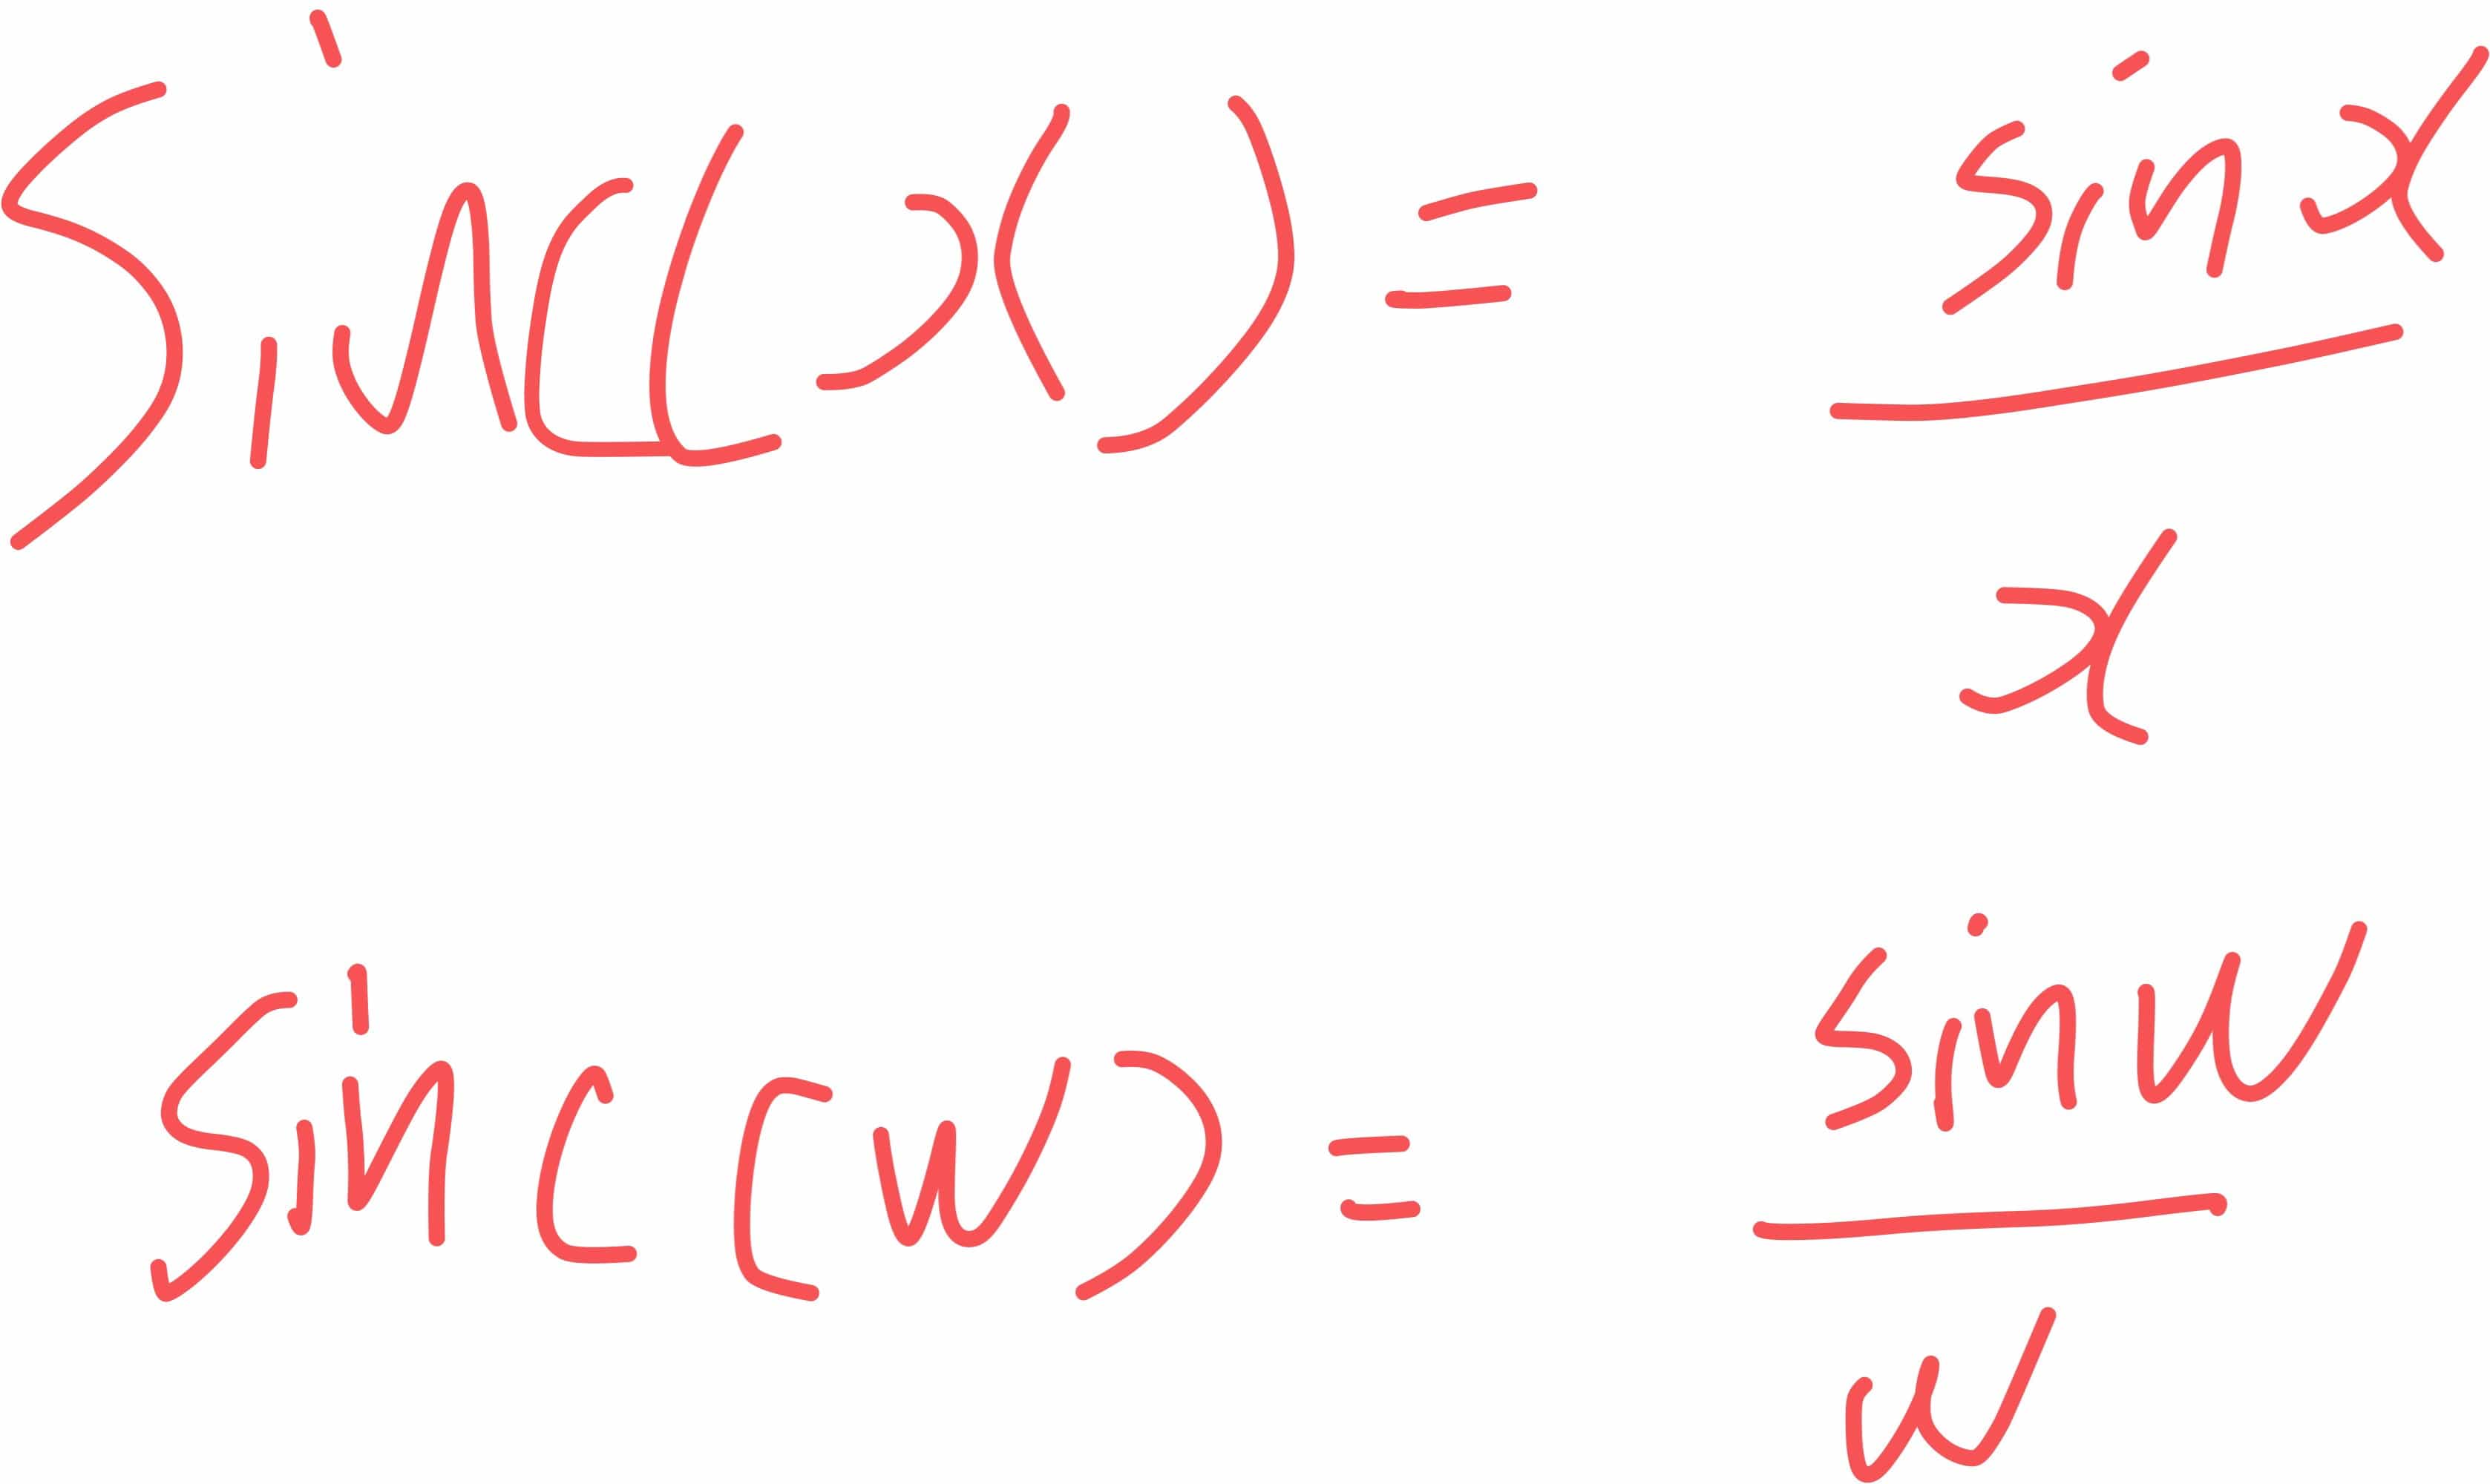 sinc(x) = sinx / x
sinc(w) = sinw / w